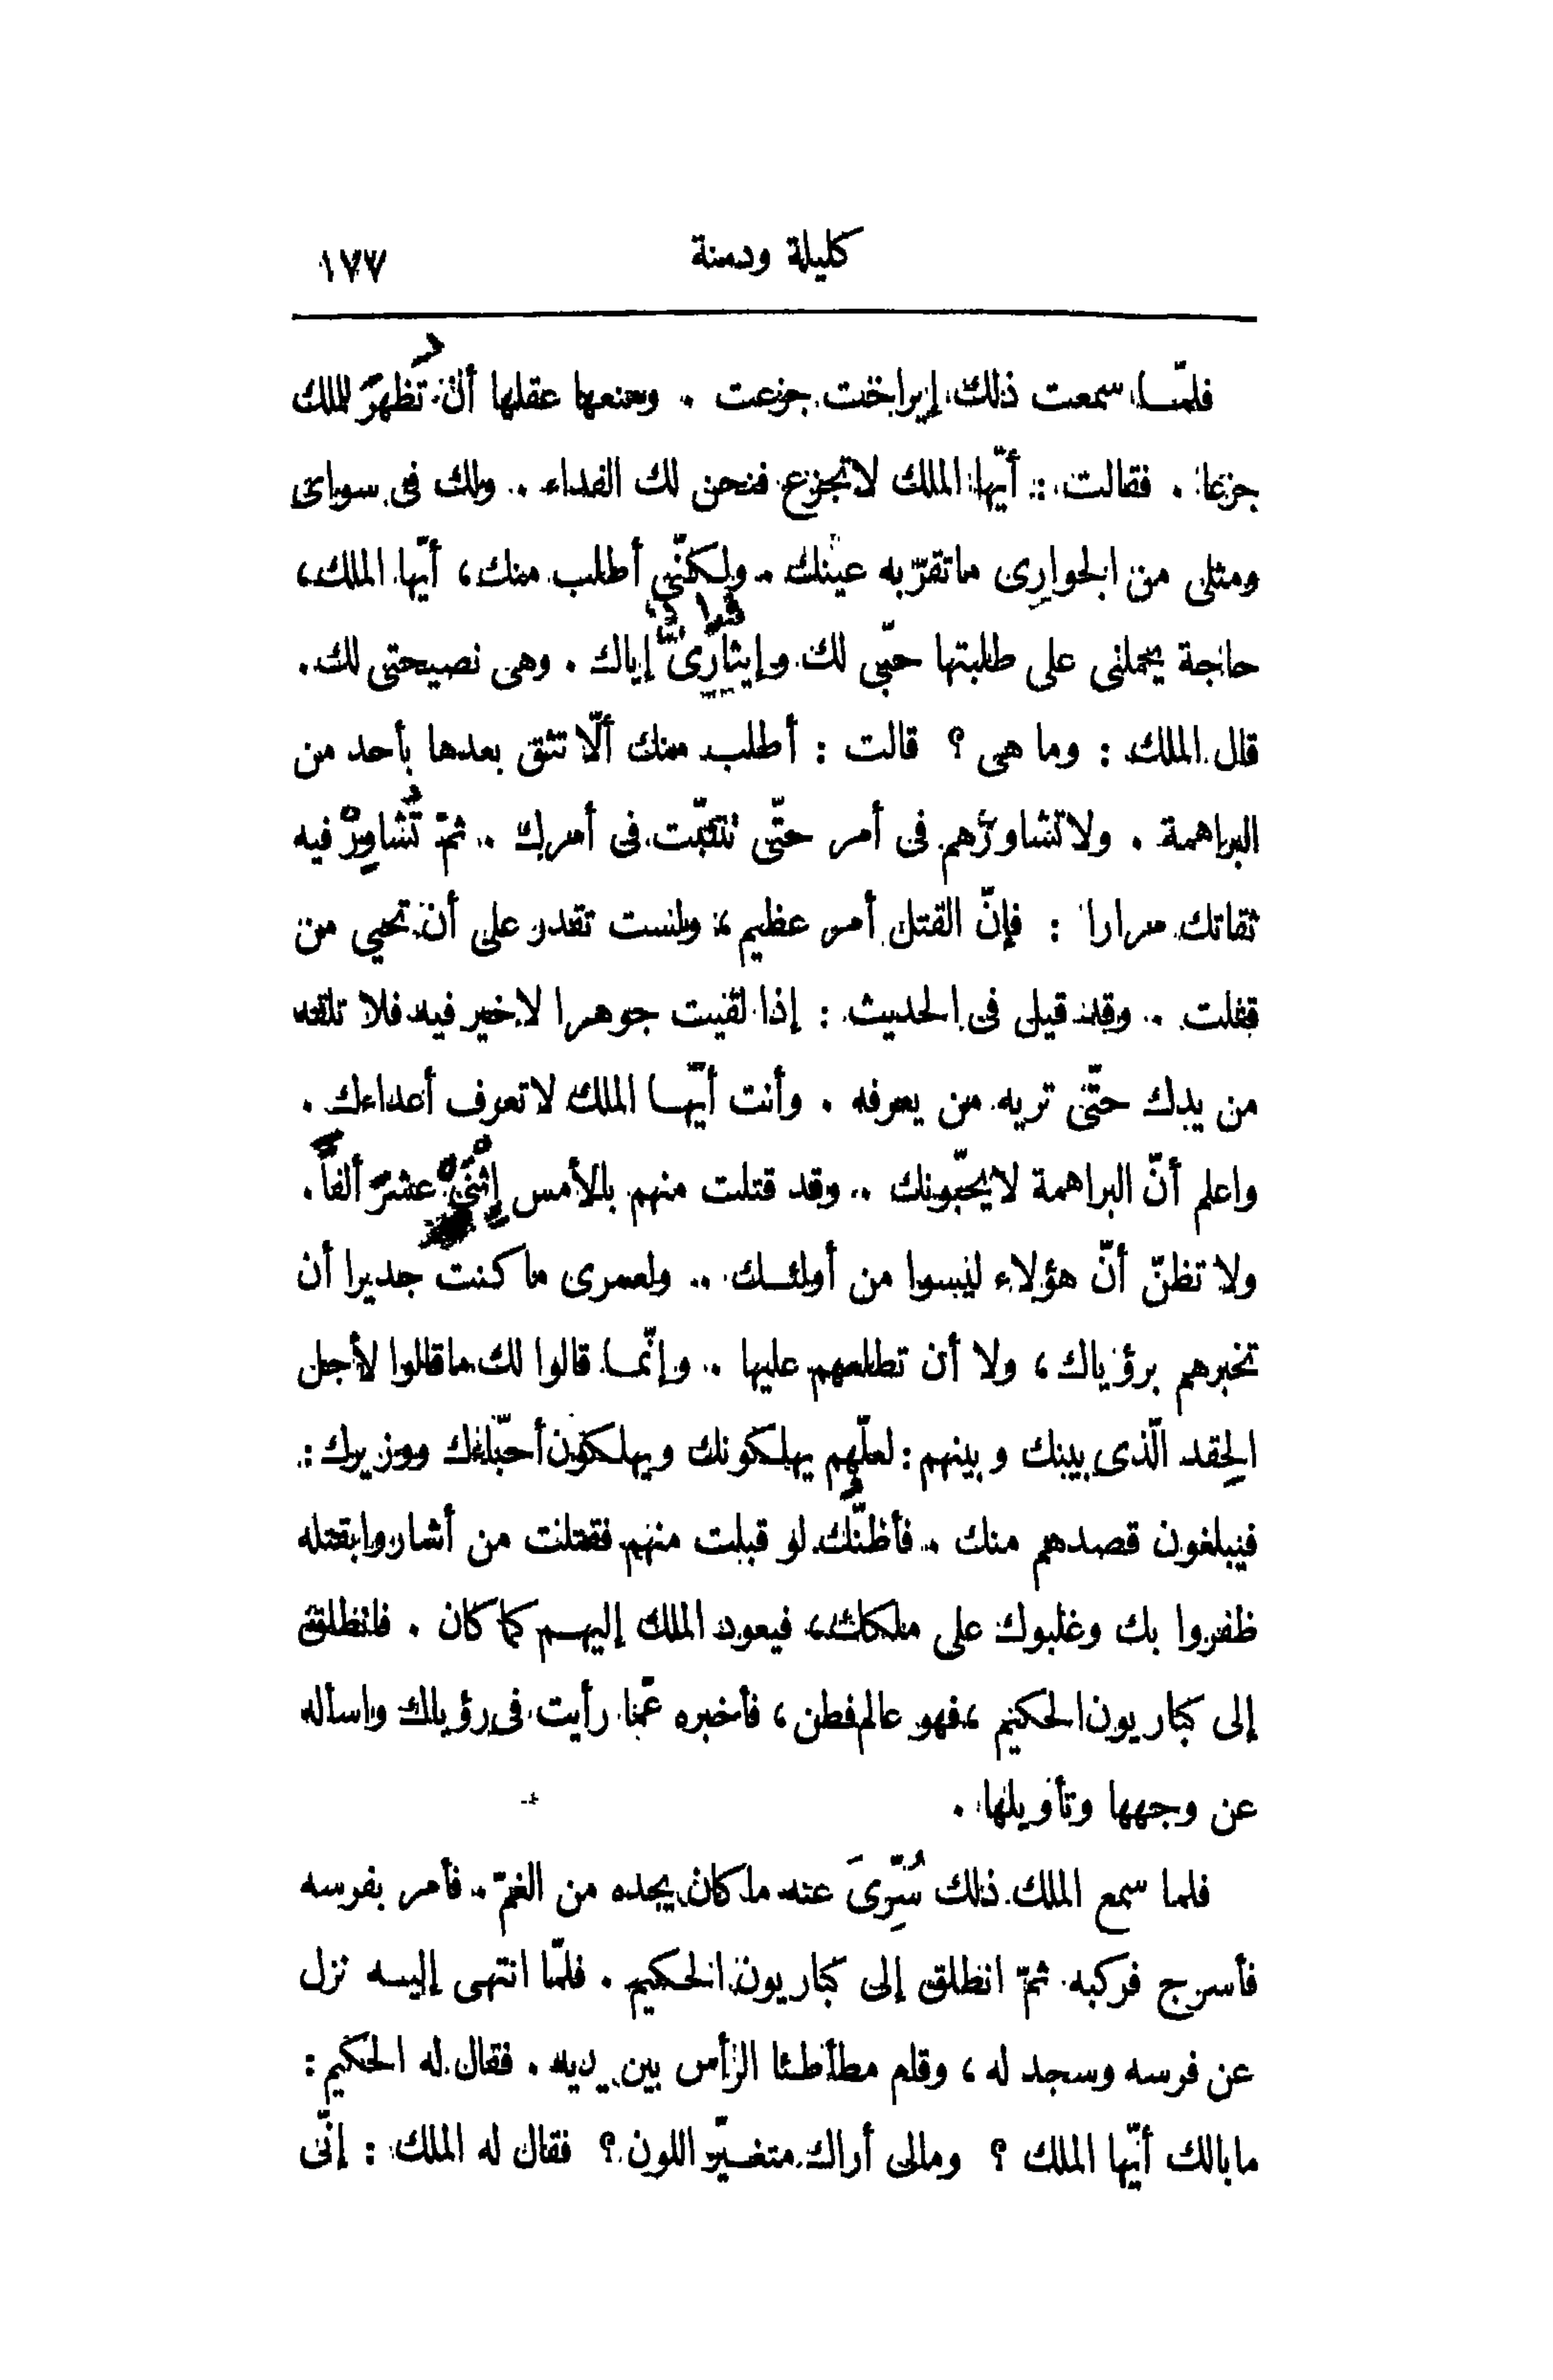 كليلة ودمنة ١٧٧
فلمّا سمعت ذلك إيراخت جزعت . ومنعها عقلها أن تُظهرَ للملك
جزعا . فقالت : أيّها الملك لا تجزع فنحن لك الفداء . ولك فى سواى
ومثلى من الجوارِى ما تقرّ به عينك . ولكنّى أطلب منك، أيّها الملك،
حاجة يحملنى على طلبتها حبّى لك وإيثارِى إياك . وهى نصيحتى لك .
قال الملك : وما هى ؟ قالت : أطلب منك ألّا تثق بعدها بأحد من
البراهمة . ولا تشاورَهم فى أمر حتّى تتثبّت فى أمرك . ثمّ تُشاوِرْ فيه
ثقاتك مرارا : فإنّ القتل أمر عظيم ، ولست تقدر على أن تحيى من
قتلت . وقد قيل فى الحديث : إذا لقيت جوهرا لا خير فيه فلا تلقه
من يدك حتّى تريه من يعرفه . وأنت أيّها الملك لا تعرف أعداءك .
واعلم أنّ البراهمة لا يحبّونك . وقد قتلت منهم بالأمس إثْنَىْ عشَرَ ألفاً .
ولا تظنّ أنّ هؤلاء ليسوا من أولئك . ولعمرى ما كنت جديرا أن
تخبرهم برؤياك ، ولا أن تطلعهم عليها . وإنّما قالوا لك ما قالوا لأجل
الحِقد الّذى بينك وبينهم : لعلّهم يهلكونك ويهلكون أحبّاءك ووزيرك :
فيبلغون قصدهم منك . فأظنُّك لو قبلت منهم فقتلت من أشاروا بقتله
ظفروا بك وغلبوك على ملكك ، فيعود الملك إليهم كما كان . فانطلق
إلى كباريون الحكيم ، فهو عالم فطن ، فأخبره عمّا رأيت فى رؤياك واسأله
عن وجهها وتأويلها .
فلما سمع الملك ذلك سُرِّىَ عنه ما كان يجده من الغمّ . فأمر بفرسه
فأسرج فركبه ثمّ انطلق إلى كباريون الحكيم . فلمّا انتهى إليه نزل
عن فرسه وسجد له ، وقام مطأطئا الرّأس بين يديه . فقال له الحكيم :
ما بالك أيّها الملك ؟ ومالى أراك متغيّر اللون ؟ فقال له الملك : إنّى